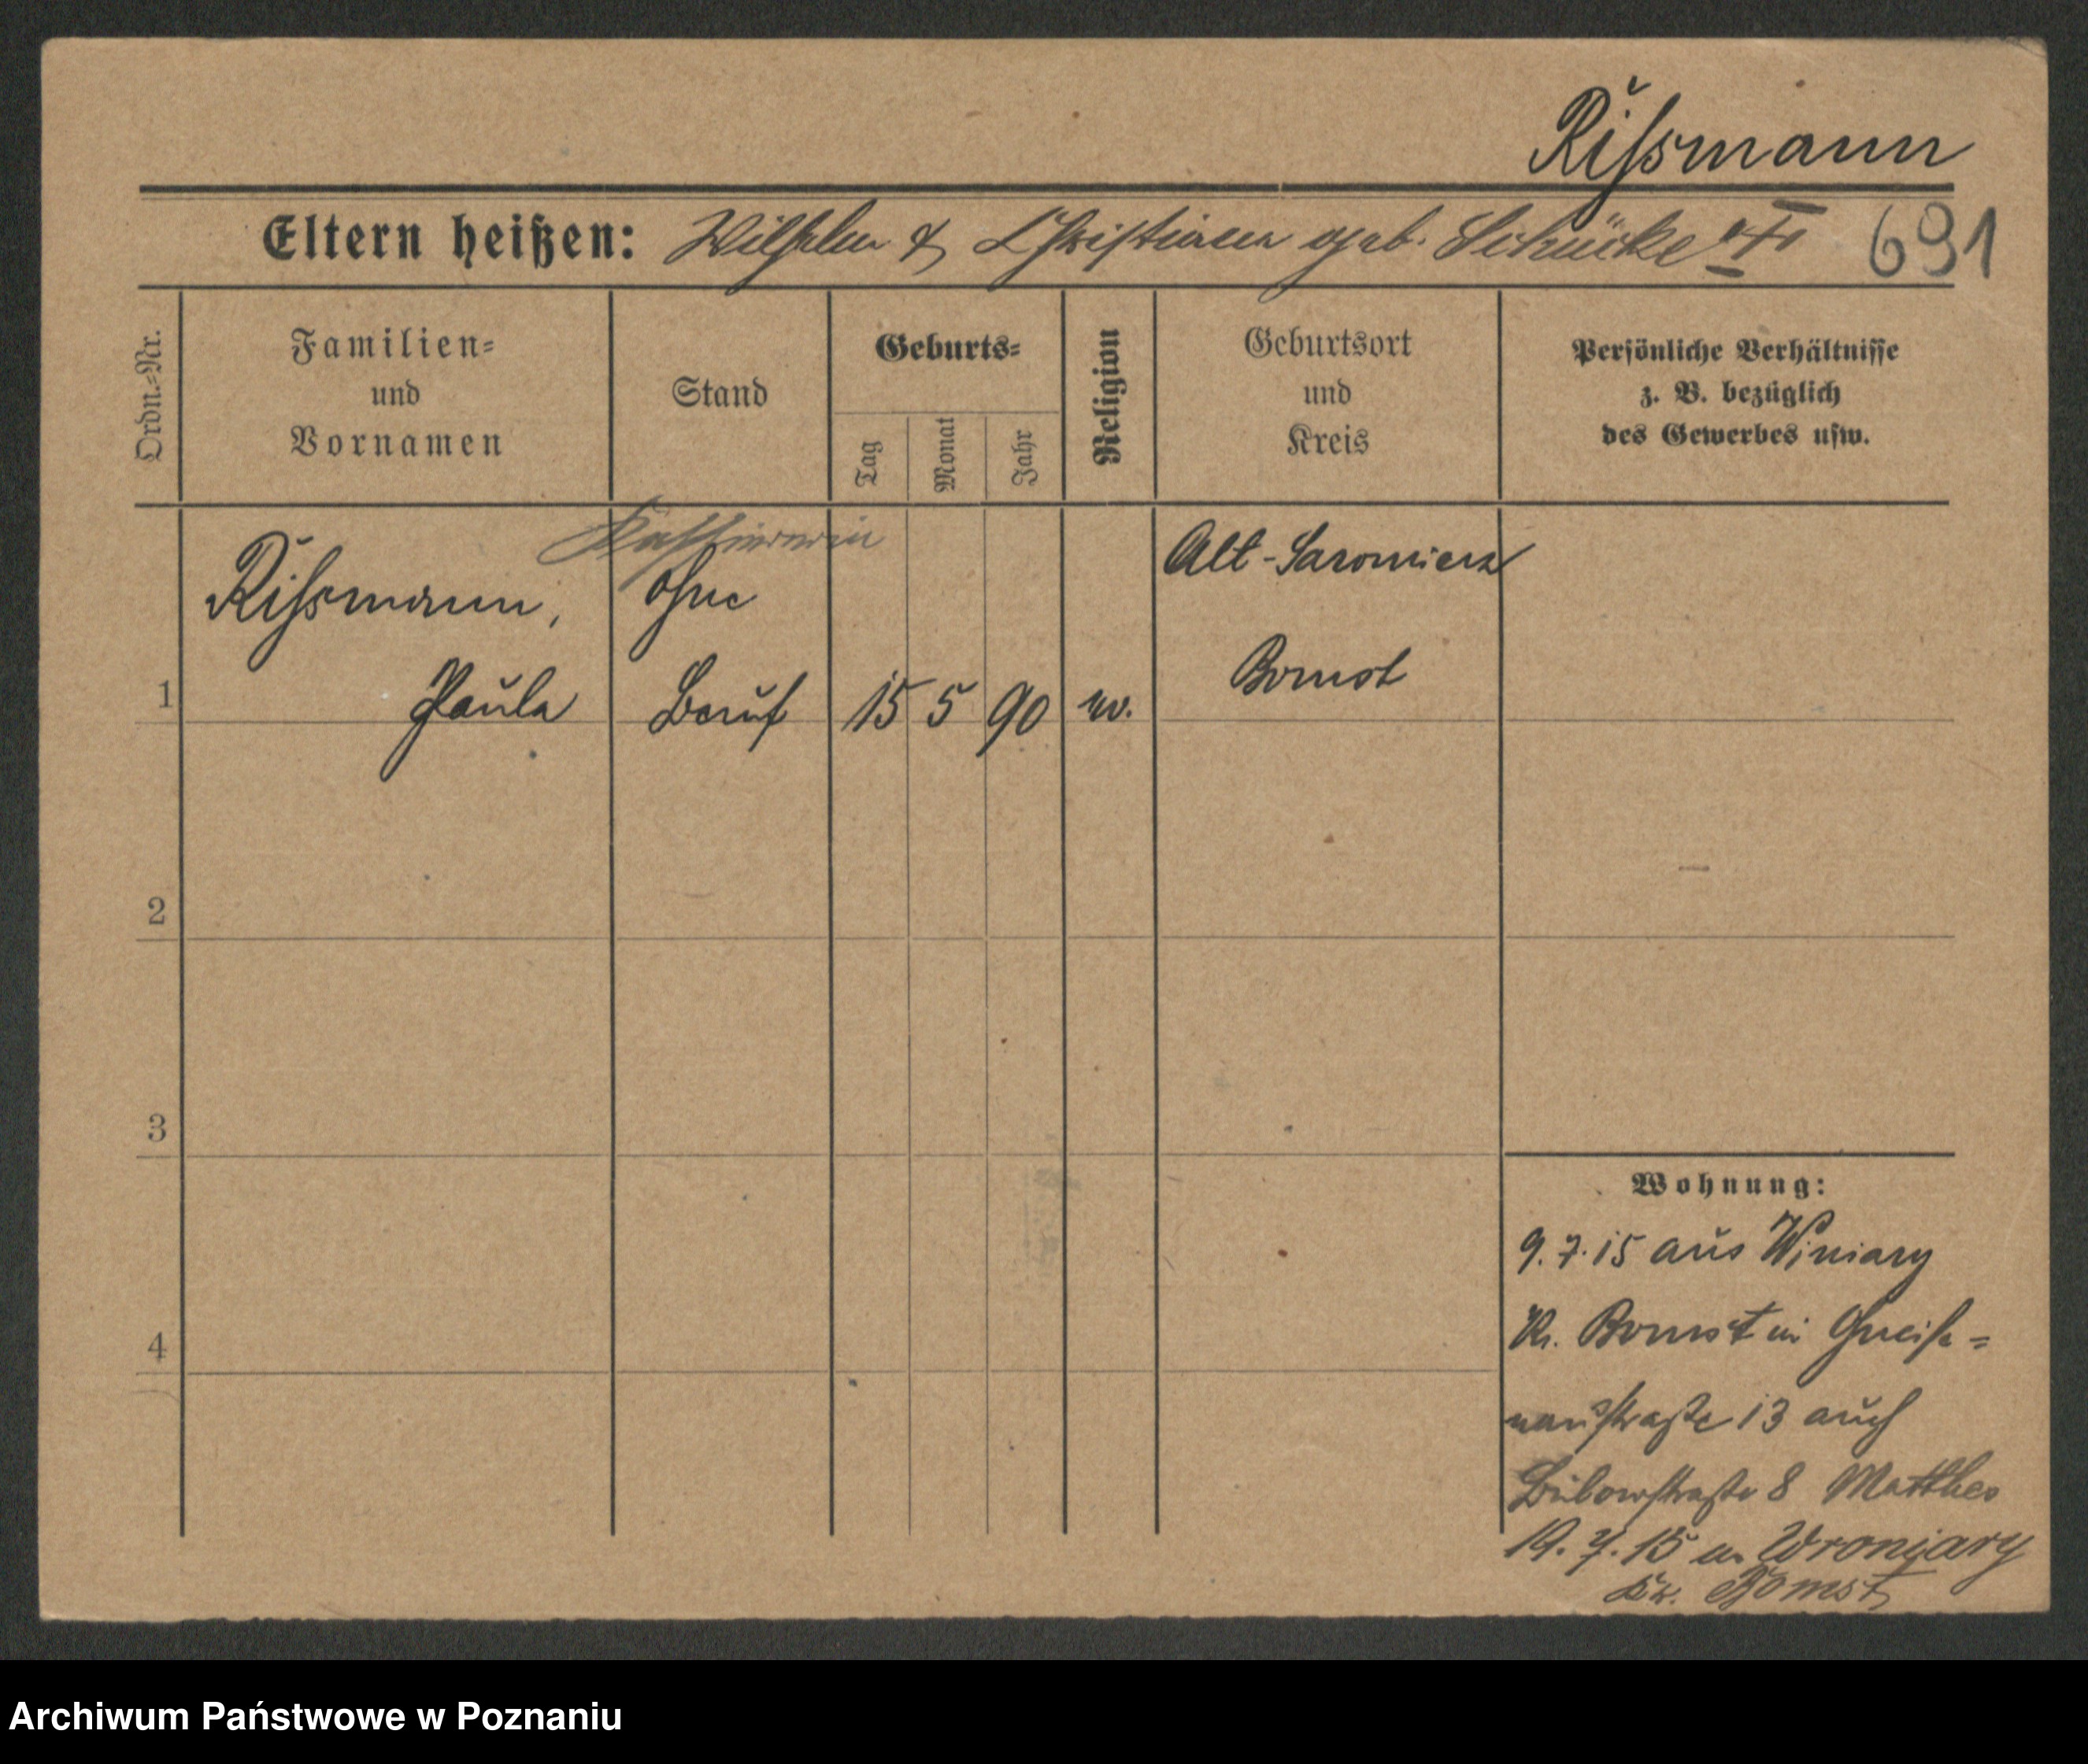 Rissmann
Eltern heißen: Wilhelm & Christiane geb. Schücke 691
Ordn.-Nr.
Familien-
und
Vornamen
Stand
Geburts-
Tag
Monat
Jahr
Religion
Geburtsort
und
Kreis
Persönliche Verhältnisse
z. B. bezüglich
des Gewerbes usw.
Kassiererin
Rissmann, ohne Alt-Jaromierz
1 Paula Beruf 15 5 90 ev. Bomst
2
3
4
Wohnung:
9. 7. 15 aus Winiary
Kr. Bomst in Gneise=
naustraße 13 auch
Bülowstraße 8 Matthes
19. 7. 15 n. Wroniary
Kr. Bomst
Archiwum Państwowe w Poznaniu